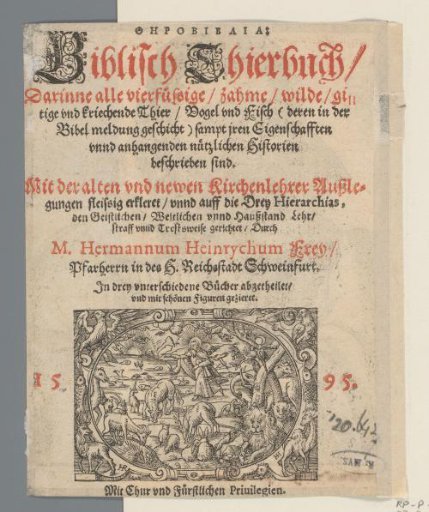 ΘΗΡΟΒΙΒΛΙΑ:
Biblisch Thierbuch/
Darinne alle vierfüssige / zahme / wilde / gif-
tige vnd kriechende Thier / Vogel vnd Fisch (deren in der
Bibel meldung geschicht) sampt jren Eigenschafften
vnnd anhangenden nützlichen Historien
beschrieben sind.
Mit der alten vnd newen Kirchenlehrer Außle-
gungen fleissig erkleret / vnnd auff die Drey Hierarchias,
den Geistlichen / Weltlichen vnnd Haußstand Lehr/
straff vnnd Trostsweise gerichtet / Durch
M. Hermannum Heinrychum Frey/
Pfarherrn in des H. Reichsstadt Schweinfurt.
In drey vnterschiedene Bücher abgetheilet/
vnd mit schönen Figuren gezieret.
15 95.
Mit Chur vnd Fürstlichen Priuilegien.
RP-P